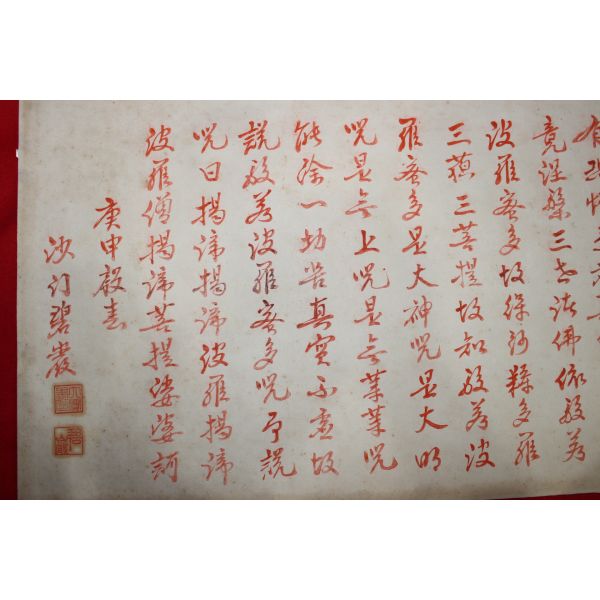 有恐怖
竟涅槃三世諸佛依般若
波羅蜜多故得阿耨多羅
三藐三菩提故知般若波
羅蜜多是大神呪是大明
呪是無上呪是無等等呪
能除一切苦真實不虛故
說般若波羅蜜多呪即說
呪曰揭諦揭諦波羅揭諦
波羅僧揭諦菩提娑婆訶
庚申春
沙门碧巖